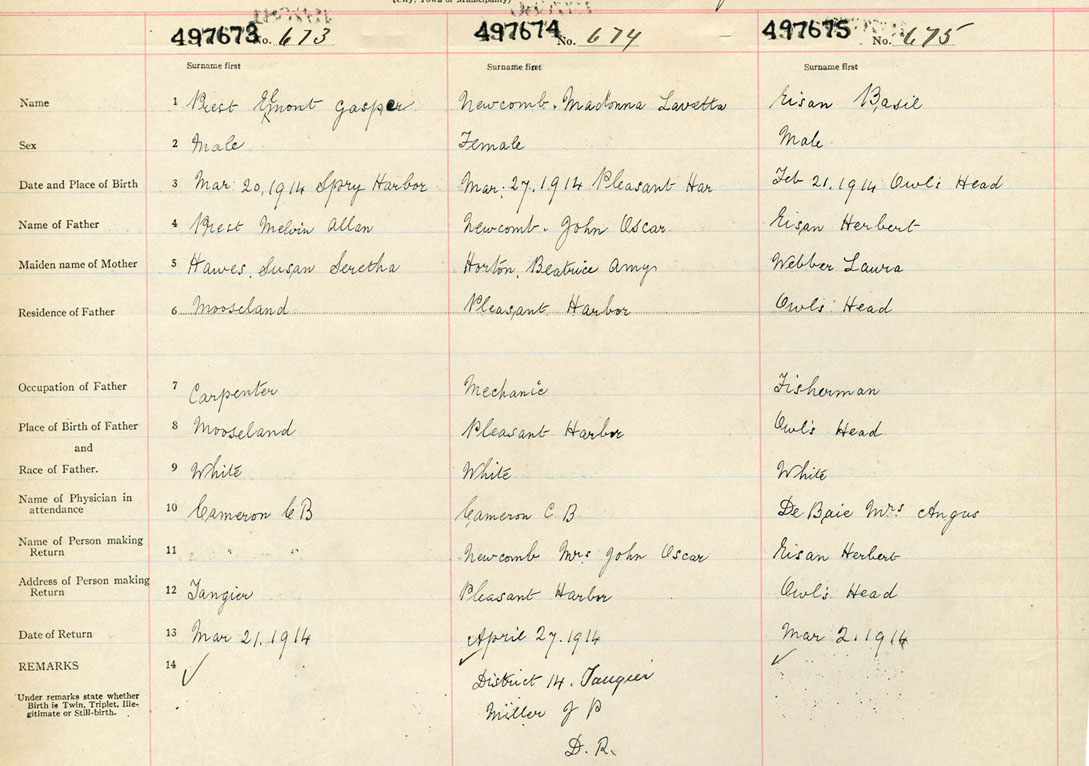 (City, Town or Municipality)
497673 No. 673 497674 No. 674 497675 No. 675
Surname first Surname first Surname first
Name 1 Prest Elmont Gasper Newcomb. Madonna Lavetta Eisan Basil
Sex 2 Male Female Male
Date and Place of Birth 3 Mar. 20, 1914 Spry Harbor Mar. 27. 1914 Pleasant Har Feb 21. 1914 Owl's Head
Name of Father 4 Prest Melvin Allan Newcomb. John Oscar Eisan Herbert
Maiden name of Mother 5 Hawes, Susan Seretha Horton, Beatrice Amy Webber Laura
Residence of Father 6 Mooseland Pleasant Harbor Owl's Head
Occupation of Father 7 Carpenter Mechanic Fisherman
Place of Birth of Father 8 Mooseland Pleasant Harbor Owl's Head
and
Race of Father. 9 White White White
Name of Physician in
attendance 10 Cameron C B Cameron C B De Baie Mrs Angus
Name of Person making
Return 11 " " Newcomb Mrs John Oscar Eisan Herbert
Address of Person making
Return 12 Tangier Pleasant Harbor Owl's Head
Date of Return 13 Mar 21. 1914 April 27. 1914 Mar 2. 1914
REMARKS 14 ✓ ✓ ✓
District 14. Tangier
Under remarks state whether
Birth is Twin, Triplet, Ille-
gitimate or Still-birth.
Miller J P
D. R.